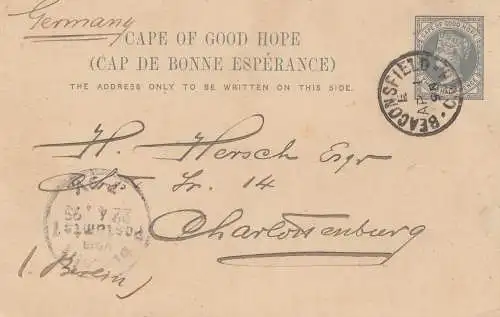 Germany
CAPE OF GOOD HOPE
(CAP DE BONNE ESPÉRANCE)
THE ADDRESS ONLY TO BE WRITTEN ON THIS SIDE.
CAPE OF GOOD HOPE
BEACONSFIELD
E
AP
95
H. Hersch Esqr
Str. 14
Charlottenburg
(. Berlin)
Postamts 1
95